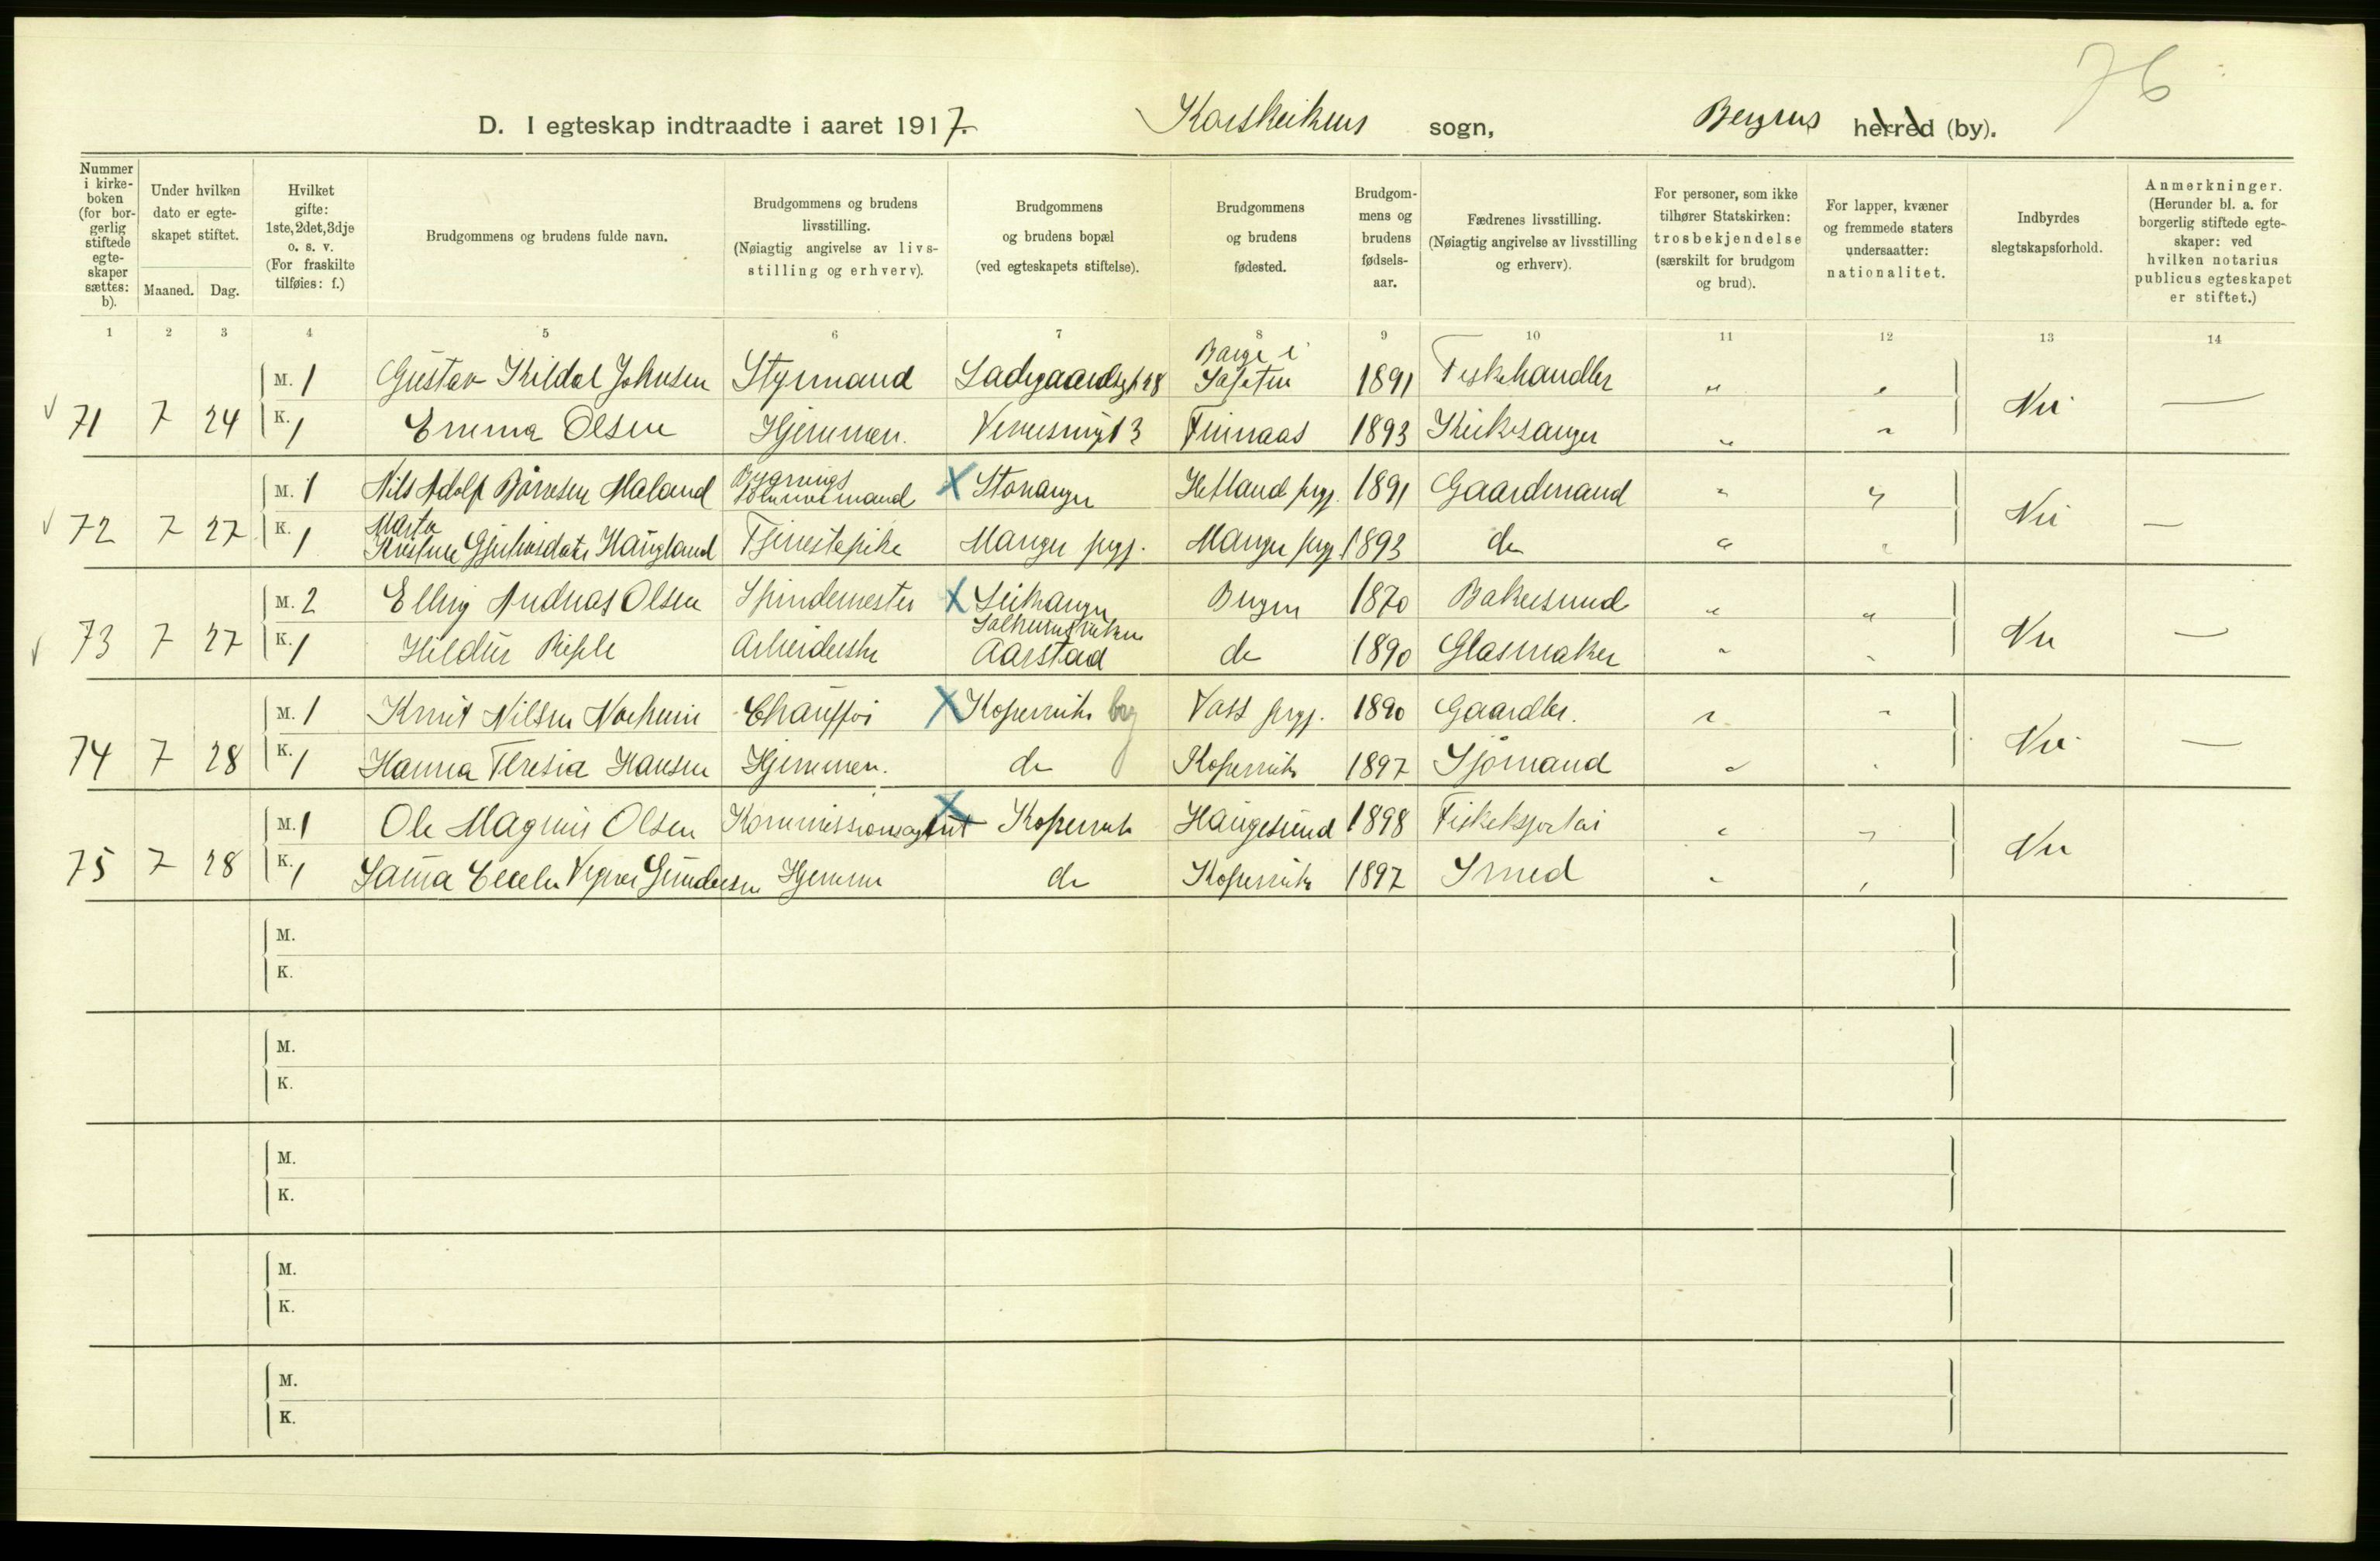 76
D. I egteskap indtraadte i aaret 1917. Korskirkens sogn, Bergens herred (by).
Nummer i kirke-boken (for bor-gerlig stiftede egte-skaper sættes: b).
Under hvilken dato er egte-skapet stiftet.
Maaned. Dag.
Hvilket gifte: 1ste, 2det, 3dje o. s. v. (For fraskilte tilføies: f.)
Brudgommens og brudens fulde navn.
Brudgommens og brudens livsstilling. (Nøiagtig angivelse av livs-stilling og erhverv).
Brudgommens og brudens bopæl (ved egteskapets stiftelse).
Brudgommens og brudens fødested.
Brudgom-mens og brudens fødsels-aar.
Fædrenes livsstilling. (Nøiagtig angivelse av livsstilling og erhverv).
For personer, som ikke tilhører Statskirken: trosbekjendelse (særskilt for brudgom og brud).
For lapper, kvæner og fremmede staters undersaatter: nationalitet.
Indbyrdes slegtskapsforhold.
Anmerkninger. (Herunder bl. a. for borgerlig stiftede egte-skaper: ved hvilken notarius publicus egteskapet er stiftet.)
1 2 3 4 5 6 7 8 9 10 11 12 13 14
M. 1 Gustav Kildal Johnsen Styrmand Ladegaardsgt 28 1891 Fiskehandler „ „
71 7 24 K. 1 Emma Olsen Hjemmen. 13 Finnaas 1893 Kirkesanger „ „ Nei —
M. 1 Nils Adolf Börresen Maland Bygnings X Stavanger Hetland prgj. 1891 Gaardmand „ „
72 7 27 K. 1 Marta Haugland Tjenestepike Manger prgj. Manger prgj. 1893 do „ „ Nei —
M. 2 Elling Andreas Olsen Spindemester X Leikanger Bergen 1870 Bakersvend „ „
73 7 27 K. 1 Hildur Riple Arbeiderske Aarstad do 1890 Glasmaker „ „ Nei —
M. 1 Knut Nilsen Chauffør X Kopervik by Voss prgj. 1890 Gaardbr. „ „
74 7 28 K. 1 Hanna Teresia Hansen Hjemmen. do Kopervik 1897 Sjömand „ „ Nei —
M. 1 Ole Magnus Olsen Kommissionsagent X Kopervik Haugesund 1898 Fiskeksportør „ „
75 7 28 K. 1 Gundersen Hjemmen do Kopervik 1897 Smed „ „ Nei
M.
K.
M.
K.
M.
K.
M.
K.
M.
K.